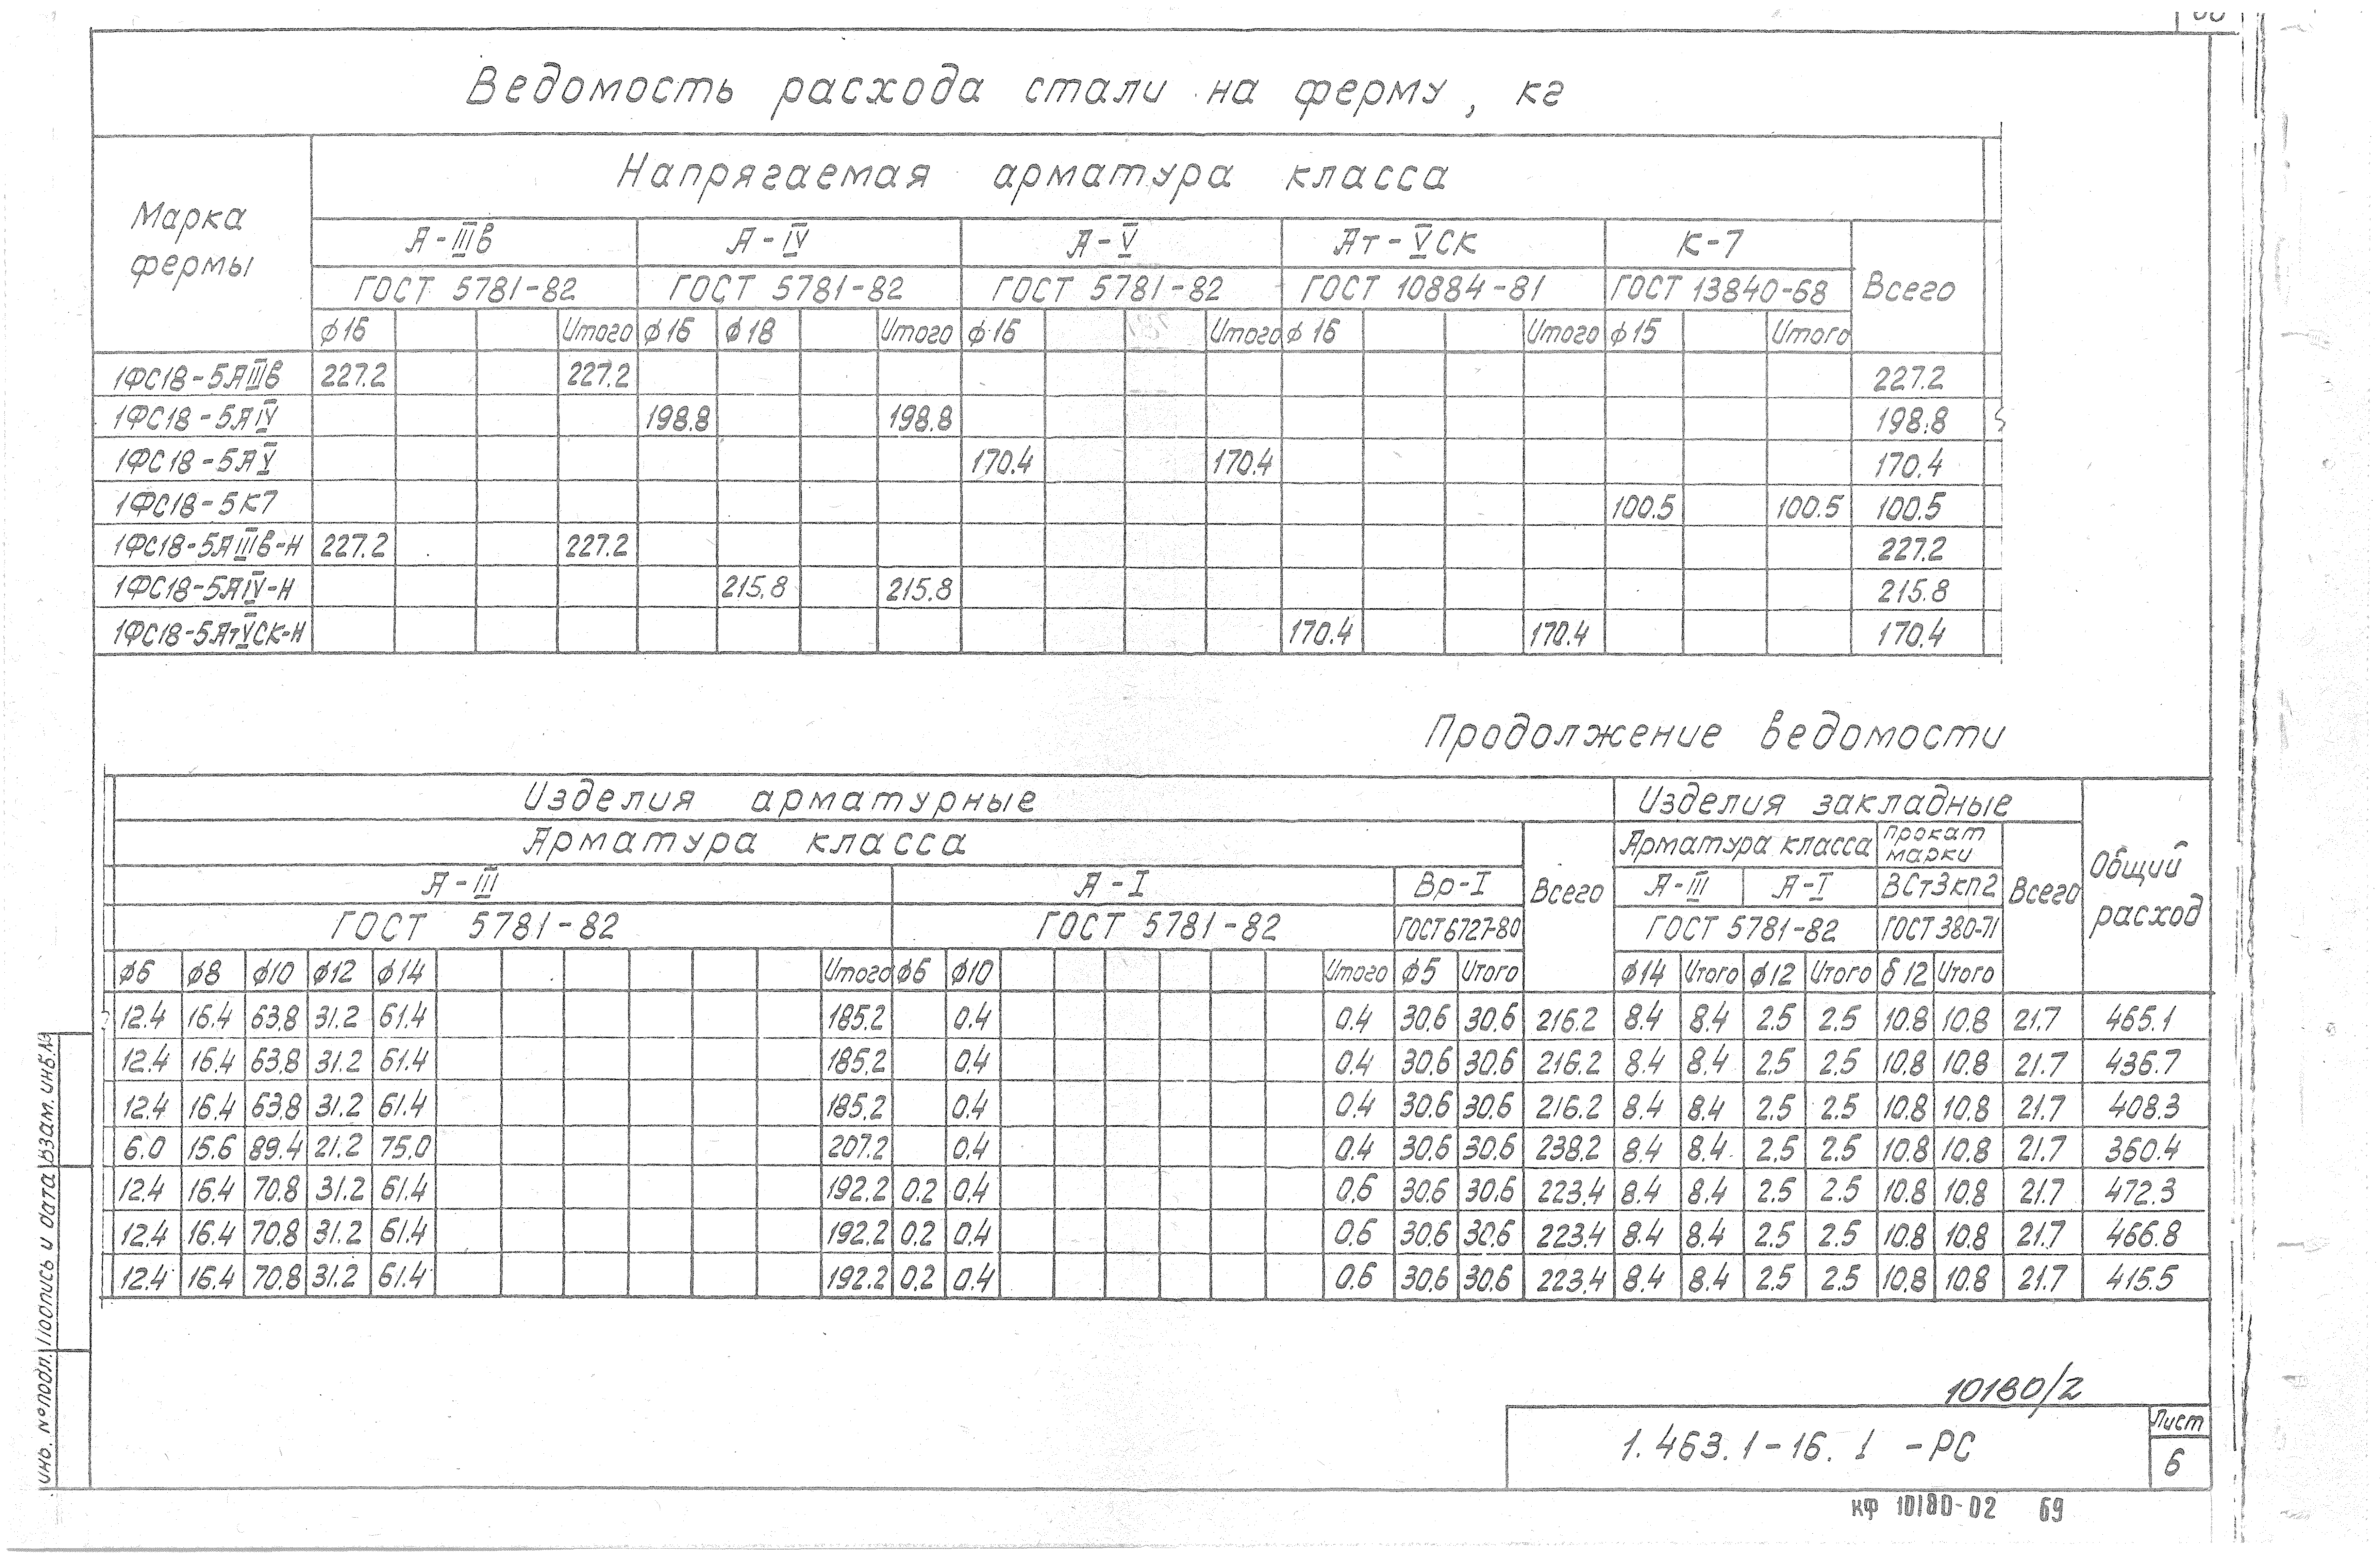 Ведомость расхода стали на ферму, кг
Марка фермы
Напрягаемая арматура класса
А-IIIв А-IV А-V Ат-VСК К-7 Всего
ГОСТ 5781-82 ГОСТ 5781-82 ГОСТ 5781-82 ГОСТ 10884-81 ГОСТ 13840-68
ф16 Итого ф16 ф18 Итого ф16 Итого ф16 Итого ф15 Итого
1ФС18-5АIIIв 227.2 227.2 227.2
1ФС18-5АIV 198.8 198.8 198.8
1ФС18-5АV 170.4 170.4 170.4
1ФС18-5К7 100.5 100.5 100.5
1ФС18-5АIIIв-Н 227.2 227.2 227.2
1ФС18-5АIV-Н 215.8 215.8 215.8
1ФС18-5АтVСК-Н 170.4 170.4 170.4
Продолжение ведомости
Изделия арматурные Изделия закладные Общий расход
Арматура класса Всего Арматура класса Прокат марки Всего
А-III А-I Вр-I А-III А-I ВСт3кп2
ГОСТ 5781-82 ГОСТ 5781-82 ГОСТ 6727-80 ГОСТ 5781-82 ГОСТ 380-71
ф6 ф8 ф10 ф12 ф14 Итого ф6 ф10 Итого ф5 Итого ф14 Итого ф12 Итого δ12 Итого
12.4 16.4 63.8 31.2 61.4 185.2 0.4 0.4 30.6 30.6 216.2 8.4 8.4 2.5 2.5 10.8 10.8 21.7 465.1
12.4 16.4 63.8 31.2 61.4 185.2 0.4 0.4 30.6 30.6 216.2 8.4 8.4 2.5 2.5 10.8 10.8 21.7 436.7
12.4 16.4 63.8 31.2 61.4 185.2 0.4 0.4 30.6 30.6 216.2 8.4 8.4 2.5 2.5 10.8 10.8 21.7 408.3
6.0 15.6 89.4 21.2 75.0 207.2 0.4 0.4 30.6 30.6 238.2 8.4 8.4 2.5 2.5 10.8 10.8 21.7 360.4
12.4 16.4 70.8 31.2 61.4 192.2 0.2 0.4 0.6 30.6 30.6 223.4 8.4 8.4 2.5 2.5 10.8 10.8 21.7 472.3
12.4 16.4 70.8 31.2 61.4 192.2 0.2 0.4 0.6 30.6 30.6 223.4 8.4 8.4 2.5 2.5 10.8 10.8 21.7 466.8
12.4 16.4 70.8 31.2 61.4 192.2 0.2 0.4 0.6 30.6 30.6 223.4 8.4 8.4 2.5 2.5 10.8 10.8 21.7 415.5
Инв. № подл. Подпись и дата Взам. инв. №
10180/2
1.463.1-16. 1 -РС
Лист
6
КФ 10180-02 69